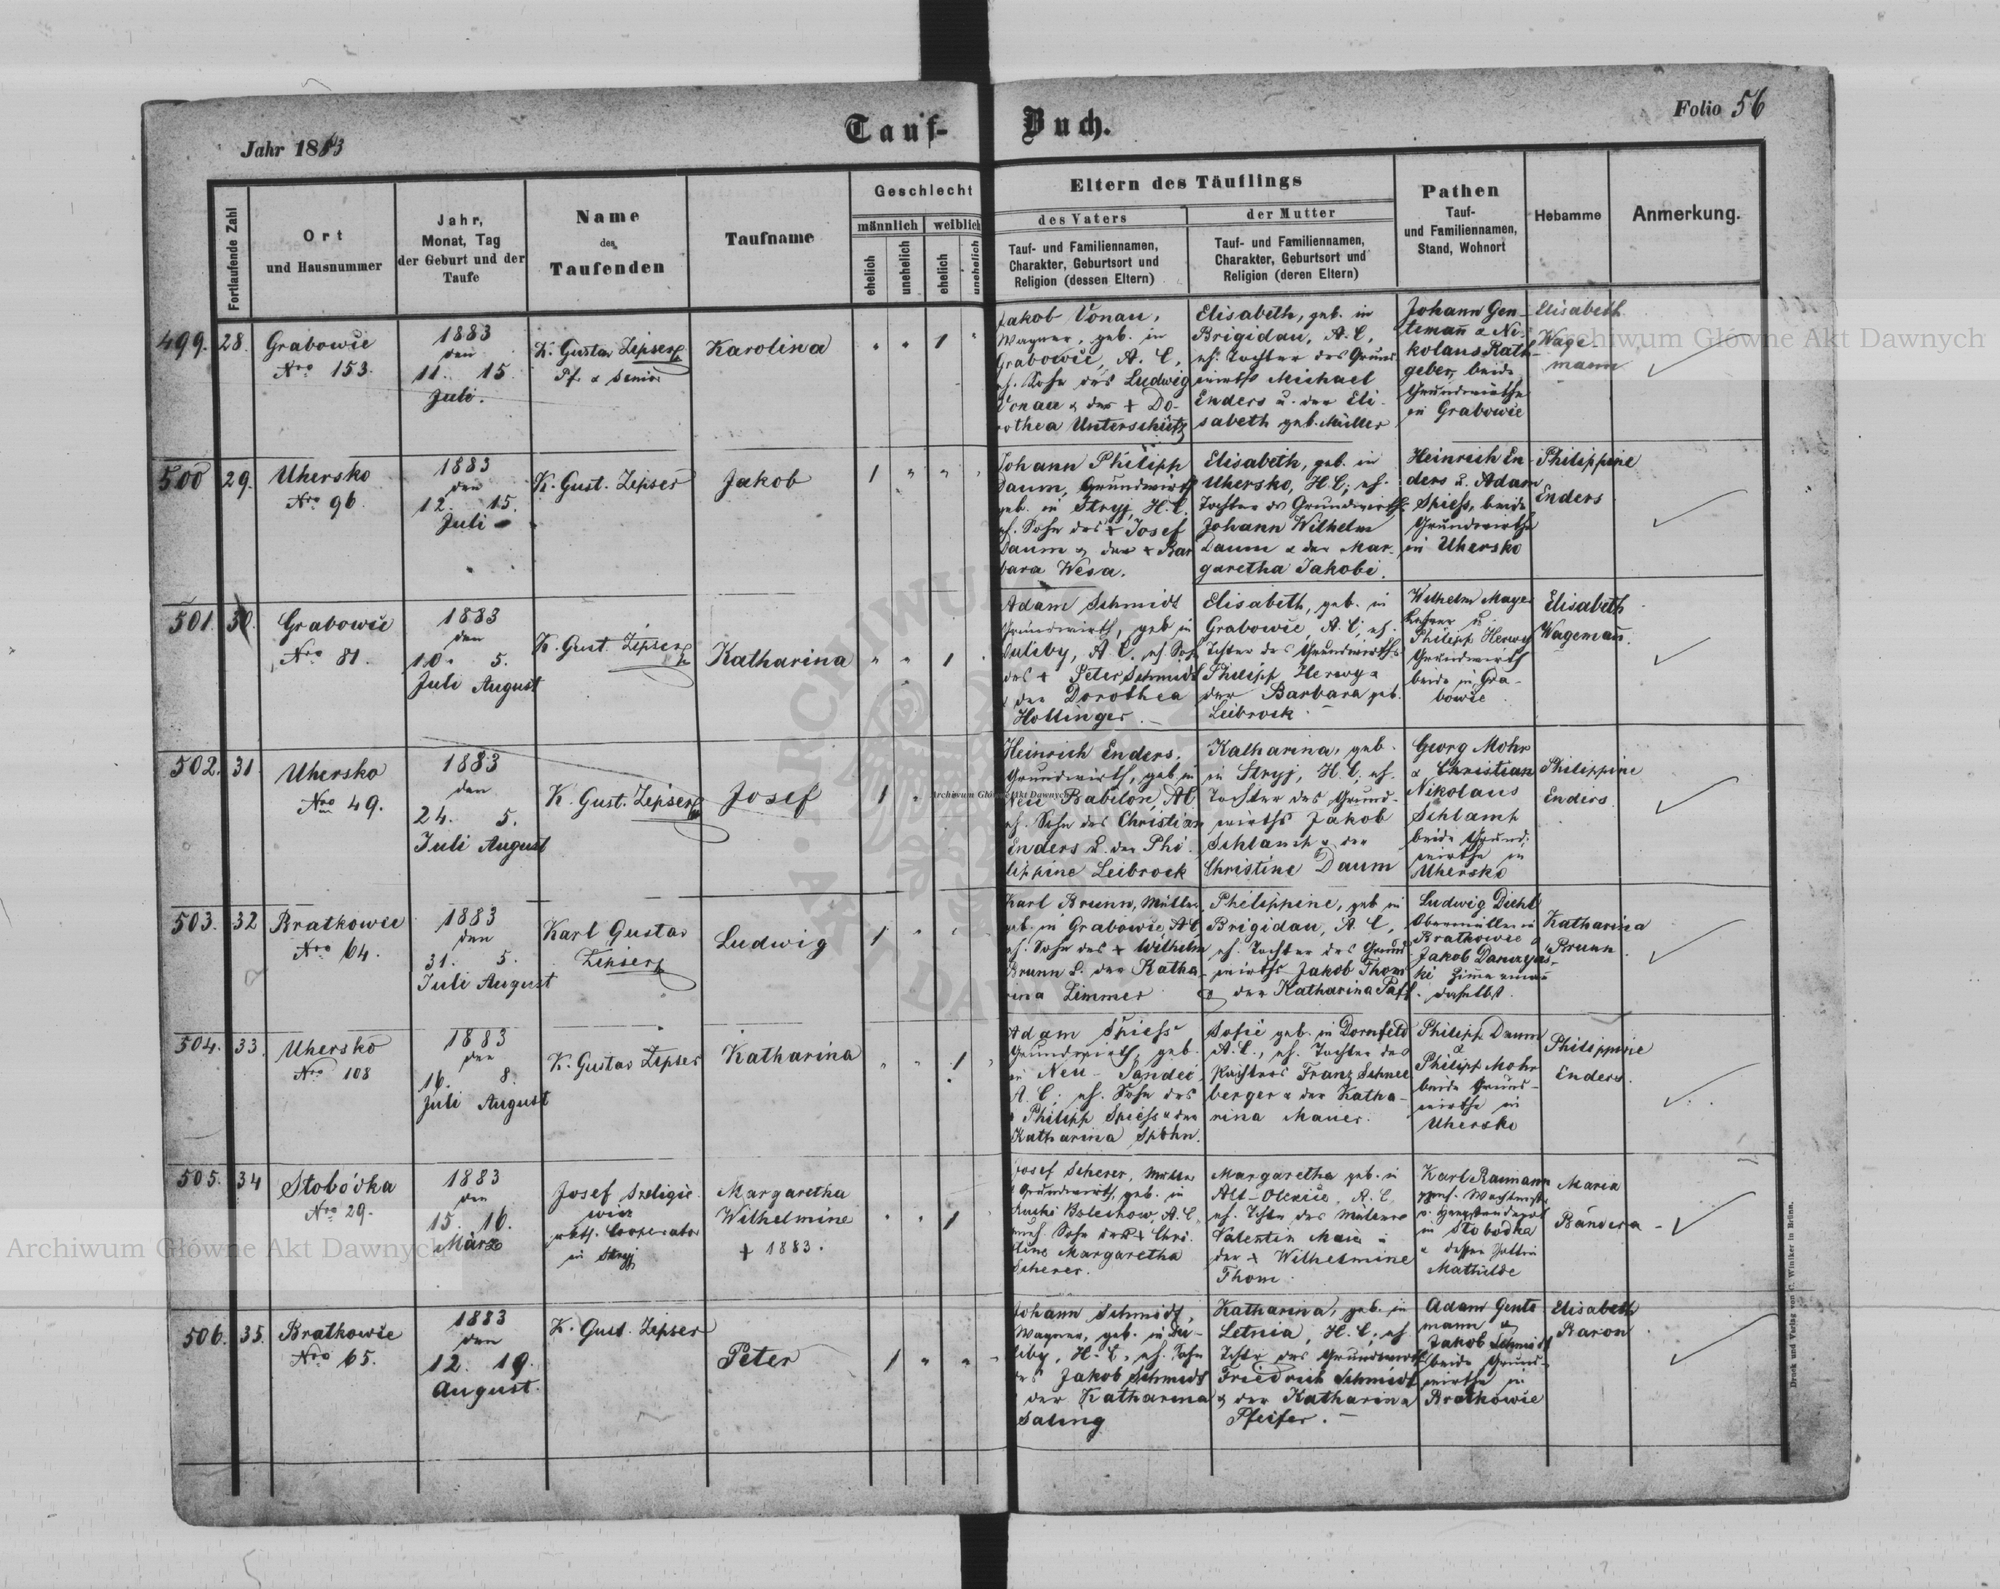 Jahr 1883
Tauf-Buch.
Folio 56
Fortlaufende Zahl
Ort
und Hausnummer
Jahr,
Monat, Tag
der Geburt und der
Taufe
Name
des
Taufenden
Taufname
Geschlecht
männlich
weiblich
ehelich
unehelich
ehelich
unehelich
Eltern des Täuflings
des Vaters
Tauf- und Familiennamen,
Charakter, Geburtsort und
Religion (dessen Eltern)
der Mutter
Tauf- und Familiennamen,
Charakter, Geburtsort und
Religion (deren Eltern)
Pathen
Tauf-
und Familiennamen,
Stand, Wohnort
Hebamme
Anmerkung.
499. 28.
Grabowie
Nro 153.
1883
den
11. 15.
Juli.
K. Gustav Zipser
Pf. & Senior
Karolina
" " 1 "
Jakob Vonau,
Wagner, geb. in
Grabowie, A. C.,
eh. Sohn des Ludwig
Vonau & der + Do-
rothea Unterschütz
Elisabeth, geb. in
Brigidau, A. C.,
eh. Tochter des Grund-
wirths Michael
Enders u. der Eli-
sabeth geb. Müller
Johann Gen-
temann & Ni-
kolaus Rath-
geber, beide
Grundwirthe
in Grabowie
Elisabeth
Wage
mann
500 29.
Uhersko
Nro 96.
1883
den
12. 15.
Juli
K. Gust. Zipser
Jakob
1 " " "
Johann Philipp
Daum, Grundwirth
geb. in Stryj, H. C.
eh. Sohn des + Josef
Daum & der + Bar
bara Wesa.
Elisabeth, geb. in
Uhersko, H. C., eh.
Tochter des Grundwirths
Johann Wilhelm
Daum & der Mar-
garetha Jakobi.
Heinrich En-
ders u. Adam
Spiess, beide
Grundwirthe
in Uhersko
Philippine
Enders
501. 30.
Grabowie
Nro 81.
1883
den
10. 5.
Juli August
K. Gust. Zipser
Katharina
" " 1 "
Adam Schmidt
Grundwirth, geb. in
Duliby, A. C. eh. Sohn
des + Peter Schmidt
& der Dorothea
Hottinger.
Elisabeth, geb. in
Grabowie, A. C., eh.
Tochter des Grundwirths
Philipp Herwy &
der Barbara geb.
Leibrock
Wilhelm Mayer
Lehrer u.
Philipp Herwy
Grundwirth
beide in Gra-
bowie
Elisabeth
Wagemañ.
502. 31.
Uhersko
Nro 49.
1883
den
24. 5.
Juli August
K. Gust. Zipser
Josef
1 "
Heinrich Enders,
Grundwirth, geb. in
Neu Babilon, A. C.
eh. Sohn des Christian
Enders u. der Phi-
lippine Leibrock
Katharina, geb.
in Stryj, H. C., eh.
Tochter des Grund-
wirths Jakob
Schlamp & der
Christine Daum
Georg Mohr
& Christian
Nikolaus
Schlamp
beide Grund-
wirthe in
Uhersko
Philippine
Enders.
503. 32
Bratkowie
Nro 64.
1883
den
31. 5.
Juli August
Karl Gustav
Zipser
Ludwig
1 " " "
Karl Brunn, Müller
geb. in Grabowie A. C.
eh. Sohn des + Wilhelm
Brunn & der Katha
rina Zimmer
Philippine, geb. in
Brigidau, A. C.,
eh. Tochter des Grund
wirths Jakob Thom
& der Katharina Paff.
Ludwig Diehl
Obermüller in
Bratkowie &
Jakob
daselbst.
Katharina
Brunn
504. 33.
Uhersko
Nro 108
1883
den
16. 8.
Juli August
K. Gustav Zipser
Katharina
" " 1 "
Adam Spiess
Grundwirth, geb.
in Neu-Sandez
A. C., eh. Sohn des
+ Philipp Spiess & der
Katharina Spöhn.
Sofie geb. in Dornfeld
A. C., eh. Tochter des
Pächters Franz Schnee
berger & der Katha-
rina Mauer.
Philipp Daum
&
Philipp Mohr
beide Grund-
wirthe in
Uhersko
Philippine
Enders.
505. 34
Stobódka
Nro 29.
1883
den
15. 16.
März
Josef Szeligie
wicz
kath. Cooperator
in Stryj
Margaretha
Wilhelmine
+ 1883.
" " 1 "
Josef Scherer, Müller
& Grundwirth, geb. in
Bolechow, A. C.
uneh. Sohn der + Chri-
stine Margaretha
Scherer.
Margaretha geb. in
Alt-Olexiie, A. C.
eh. Tochter des Müllers
Valentin Maie &
der + Wilhelmine
Thom.
Karl Raimann
pens. Wachtmstr.
in Stobodka
& dessen Gattin
Mathilde
Maria
Bandera
506. 35.
Bratkowie
Nro 65.
1883
den
12. 19.
August.
K. Gust. Zipser
Peter
1 " " "
Johann Schmidt,
Wagner, geb. in Du-
liby, H. C., eh. Sohn
des Jakob Schmidt
& der Katharina
Saling
Katharina, geb. in
Letnia, H. C., eh.
Tochter des Grundwirths
Friedrich Schmidt
& der Katharina
Pfeifer.
Adam Gente
mann &
Jakob Schmidt
beide Grund-
wirthe in
Bratkowie
Elisabeth
Baron
Druck und Verlag von C. Winiker in Brünn.
Archiwum Główne Akt Dawnych
Archiwum Główne Akt Dawnych
Archiwum Główne Akt Dawnych